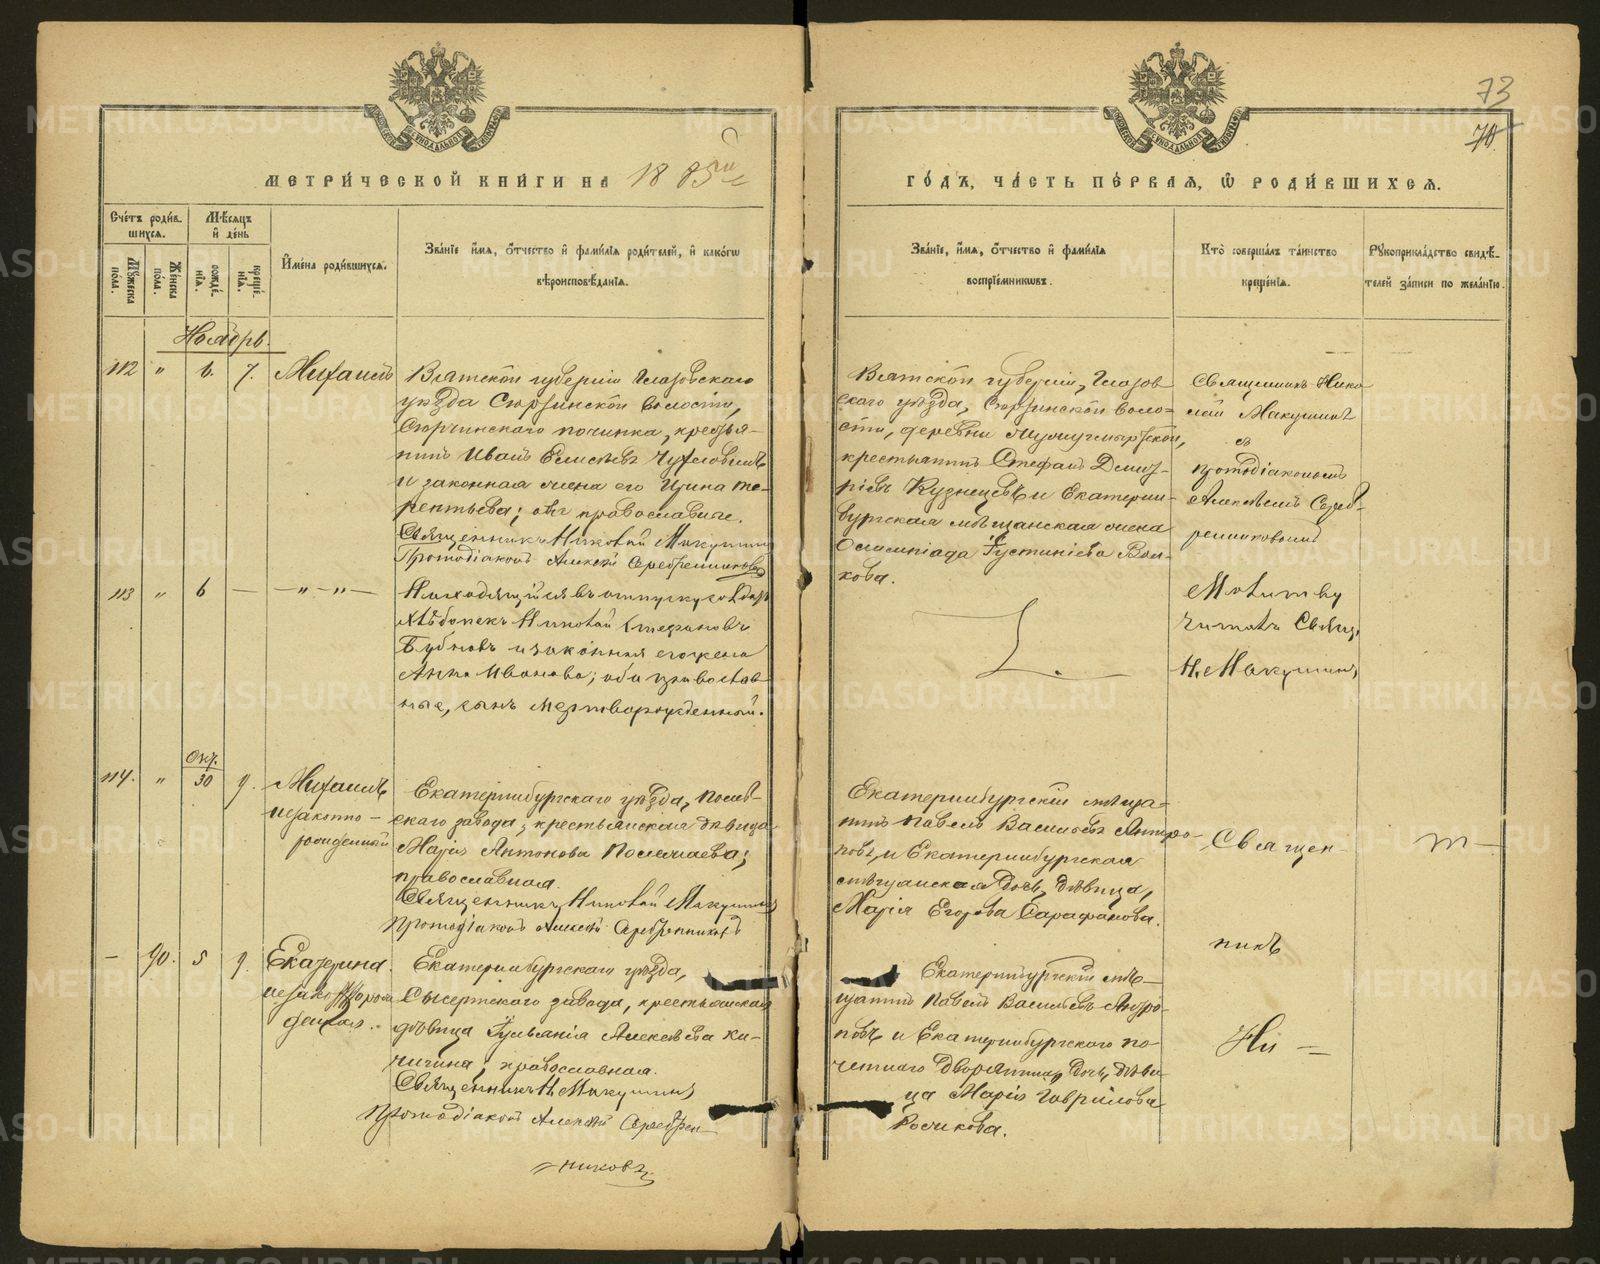 73
70.
МЕТРИ́ЧЕСКОЙ КНИ́ГИ НА 1885
ГО́ДЪ, ЧА́СТЬ ПЕ́РВАЯ, Ѡ РОДИ́ВШИХСЯ.
Сче́тъ роди́в-
шихся.
Мѣ́сяцъ
и҆ де́нь
Мꙋжеска
по́ла.
Же́нска
по́ла.
рожде́-
нїя.
креще́-
нїя.
И҆мена̀ роди́вшихся.
Зва́нїе и҆́мя, ѻ҆́тчество и҆ фами́лїя роди́телей, и҆ како́гѡ
вѣроисповѣ́данїя.
Зва́нїе, и҆́мя, ѻ҆́тчество и҆ фами́лїя
воспрїе́мникѡвъ.
Кто̀ соверша́лъ та́инство
креще́нїя.
Рꙋкоприкла́дство свидѣ́-
телей за́писи по жела́нїю.
Ноябрь.
112 " 6. 7. Михаилъ
Вятской губерніи Глазовскаго
уѣзда Сюрзинской волости,
починка, крестья-
нинъ Иванъ Елисѣевъ
и законная жена его Ирина Те-
рентьева; оба православные.
Священникъ Николай Макушинъ
Протодіаконъ Алексѣй Серебренниковъ
Вятской губерніи, Глазов
скаго уѣзда, Сюрзинской воло-
сти, деревни
крестьянинъ Стефанъ Дмит-
ріевъ Кузнецовъ и Екатерин-
бургская мѣщанская жена
Олимпіада Іустиніева Вол-
кова.
Священникъ Нико
лай Макушинъ
съ
протодіакономъ
Алексѣемъ Сереб-
ренниковымъ
113 " 6 — — " — " —
Находящійся въ отпуску
Николай Стефановъ
Бубновъ и законная его жена
Анна Иванова; оба православ
ные, сынъ мертворожденный.
Молитву
читалъ Свящ.
Н. Макушинъ
Окт.
114. " 30 9. Михаилъ
незаконно-
рожденный
Екатеринбургскаго уѣзда,
скаго завода, крестьянская дѣвица
Марія Антонова
православная.
Священникъ Николай Макушинъ
Протодіаконъ Алексѣй Серебренниковъ
Екатеринбургскій мѣща-
нинъ Павелъ Васильевъ Андро-
повъ, и Екатеринбургская
мѣщанская дочь, дѣвица,
Марія Егорова Сарафанова.
Священ-
никъ
Ни —
т —
— 90. 5 9. Екатерина
незаконнорож
денная.
Екатеринбургскаго уѣзда,
Сысертскаго завода, крестьянская
дѣвица Іуліанія Алексѣева Ки-
чигина; православная.
Священникъ Н. Макушинъ
Протодіаконъ Алексѣй Серебрен-
никовъ
Екатеринбургскій мѣ-
щанинъ Павелъ Васильевъ Андро-
повъ и Екатеринбургскаго по-
четнаго дворянина дочь, дѣви-
ца Марія Гаврилова
METRIKI.GASO-URAL.RU